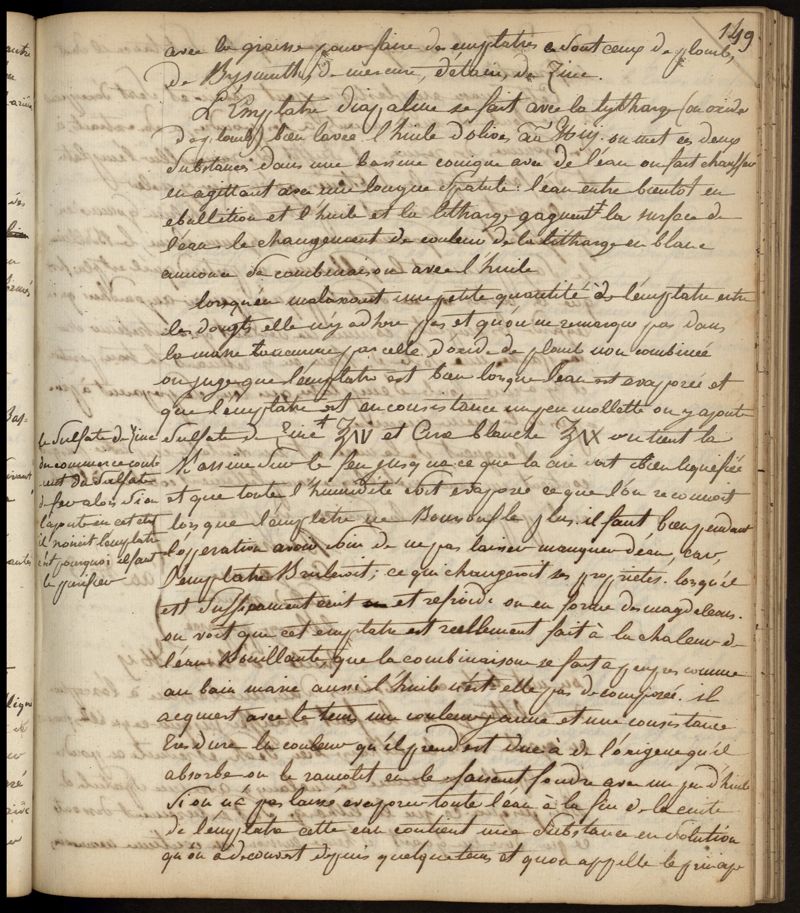 149
avec la graisse pour faire des emplatres ce sont ceux de plomb,
de Bysmuth, de mercure, d'étain, de Zinc.
L'Emplatre diapalme se fait avec la lytharge (ou oxide
de plomb) bien lavée l'huile d'olives on met ces deux
substances dans une bassine conique avec de l'eau on fait chauffer
en agittant avec une longue spatule. l'eau entre bientot en
ebullition et l'huile et la litharge gagnent la surface de
l'eau le changement de couleur de la litharge en blanc
annonce sa combinaison avec l'huile
lorsqu'en malaxant une petite quantité de l'emplatre entre
les doigts elle n'y adhere pas et qu'on ne remarque pas dans
la masse aucune parcelle d'oxide de plomb non combinée
on juge que l'emplatre est bien lorsque l'eau est evaporée et
que l'emplatre est en consistance un peu mollette on y ajoute
sulfate de Zinc + ʒIV et Cire blanche ʒIX on tient la
Bassine sur le feu jusqu'a ce que la cire soit bien liquefiée
et que toute l'humidité soit evaporée ce que l'on reconnoit
lorsque l'emplatre ne Boursoufle plus. il faut bien pendant
l'operation avoir soin de ne pas laisser manquer d'eau, car,
l'emplatre Bruleroit; ce qui changeroit ses proprietés. lorsqu'il
est suffisament cuit et refroidi on en forme des magdeleons.
on voit que cet emplatre est reellement fait à la chaleur de
l'eau Bouillante, que la combinaison se fait a peu pres comme
au bain marie aussi l'huile n'est elle pas decomposée. il
acquiert avec le tems une couleur jaune et une consistance
tres dure la couleur qu'il prend est due à de l'oxigene qu'il
absorbe on le ramolit en le faisant fondre avec un peu d'huile
Si on n'a pas laissé evaporer toute l'eau à la fin de la cuite
de l'emplatre cette eau contient une substance en solution
qu'on a decouvert depuis quelque tems et qu'on appelle le principe
le Sulfate de Zinc
du commerce conti
-ent du Sulfate
de fer alors si on
l'ajoute en cet etat
il noircit l'emplatre
c'est pourquoi il faut
le purifier